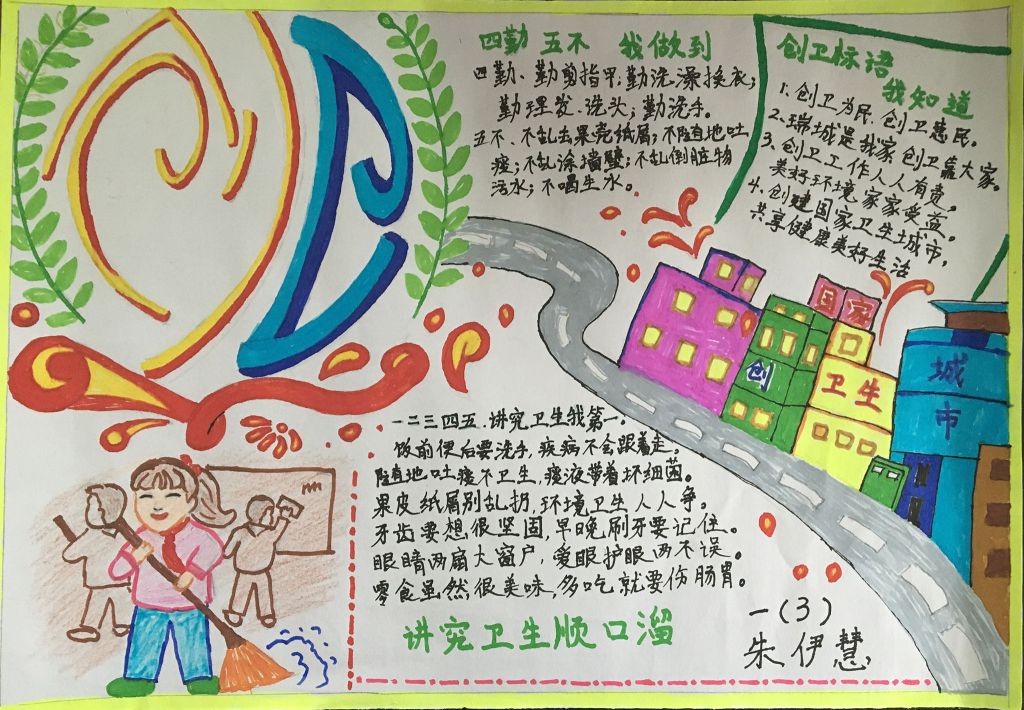 四勤 五不 我做到
四勤、勤剪指甲;勤洗澡换衣;
勤理发.洗头;勤洗手。
五不、不乱丢果壳纸屑;不随地吐
痰;不乱涂墙壁;不乱倒脏物
污水;不喝生水。
创卫标语
我知道
1、创卫为民,创卫惠民。
2、瑞城是我家,创卫靠大家。
3、创卫工作人人有责。
美好环境家家受益。
4、创建国家卫生城市,
共享健康美好生活
国家
创
卫生
城
市
一二三四五.讲究卫生我第一。
饭前便后要洗手,疾病不会跟着走,
随地吐痰不卫生,痰液带着坏细菌。
果皮纸屑别乱扔,环境卫生人人争。
牙齿要想很坚固,早晚刷牙要记住。
眼睛两扇大窗户,爱眼护眼两不误。
零食虽然很美味,多吃就要伤肠胃。
讲究卫生顺口溜
一(3)
朱伊慧